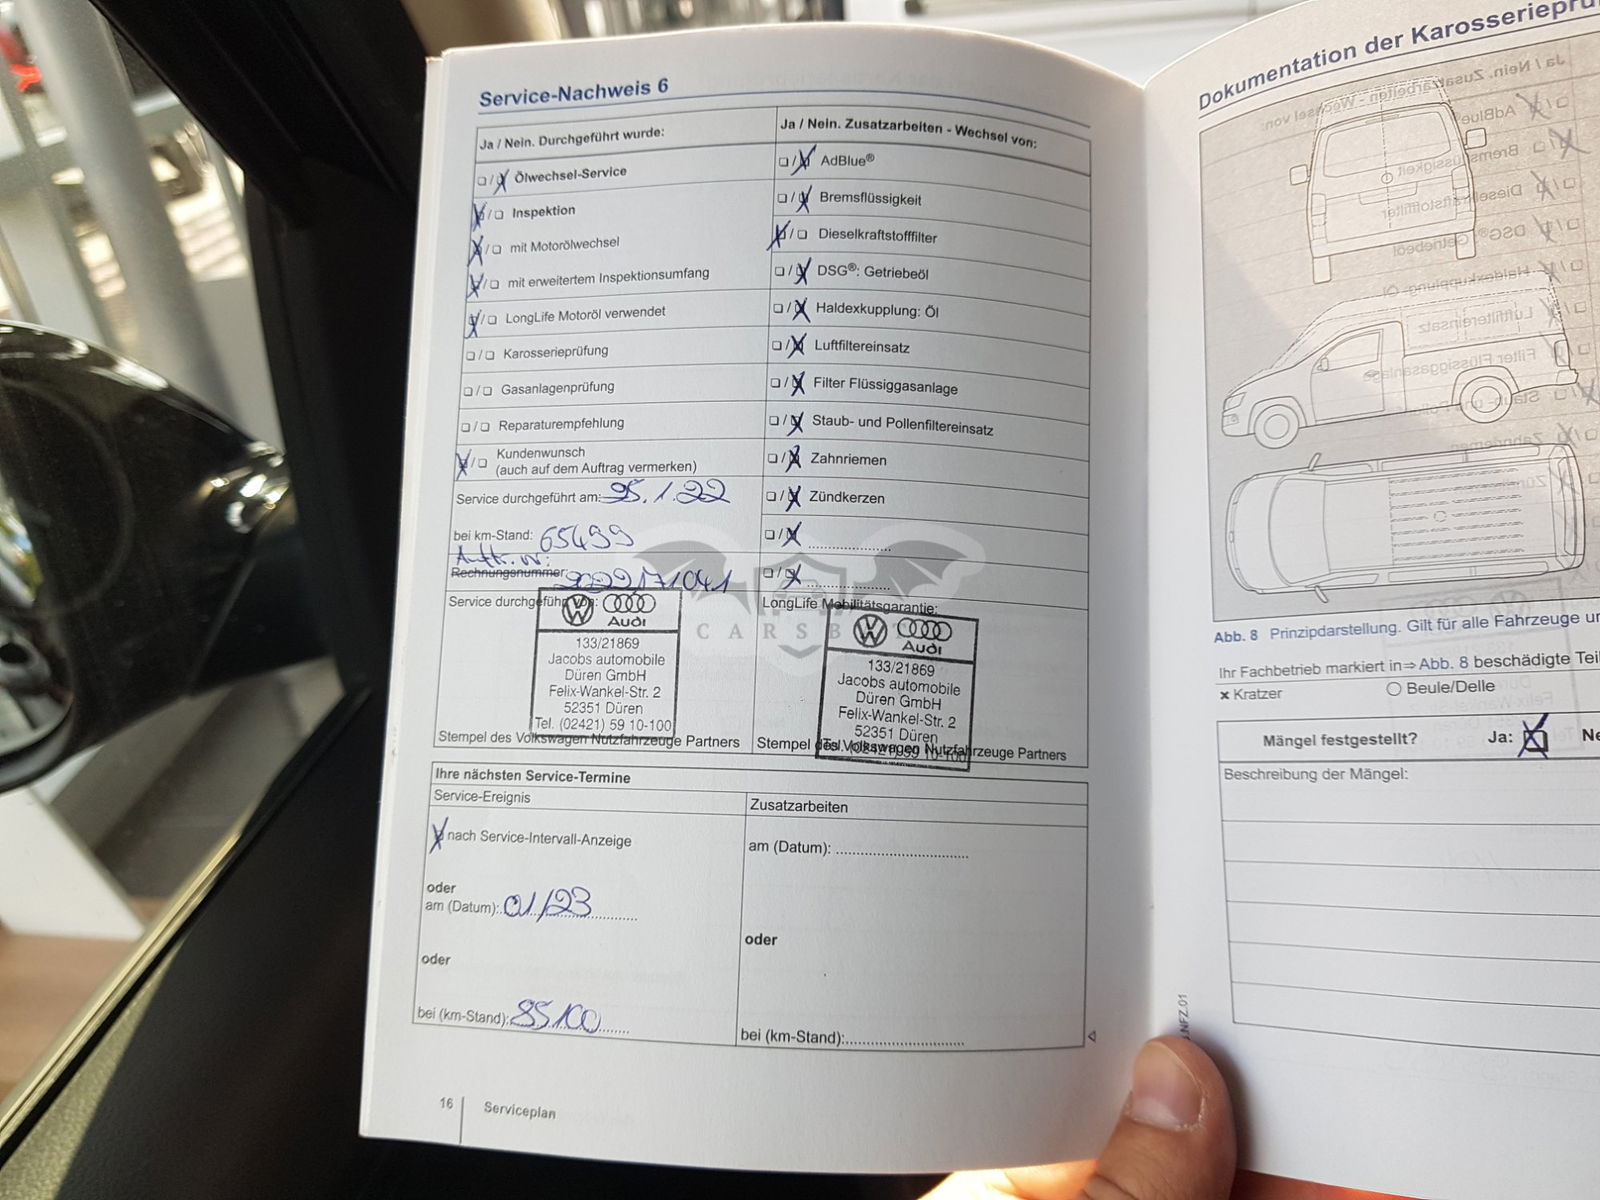 Service-Nachweis 6
Ja / Nein. Durchgeführt wurde:
Ölwechsel-Service
Inspektion
mit Motorölwechsel
mit erweitertem Inspektionsumfang
LongLife Motoröl verwendet
Karosserieprüfung
Gasanlagenprüfung
Reparaturempfehlung
Kundenwunsch
(auch auf dem Auftrag vermerken)
Service durchgeführt am: 25.1.22
bei km-Stand: 65499
Auftr. Nr:
Rechnungsnummer: 2022171041
Service durchgeführt von:
Audi
133/21869
Jacobs automobile
Düren GmbH
Felix-Wankel-Str. 2
52351 Düren
Tel. (02421) 59 10-100
Stempel des Volkswagen Nutzfahrzeuge Partners
Ja / Nein. Zusatzarbeiten - Wechsel von:
AdBlue®
Bremsflüssigkeit
Dieselkraftstofffilter
DSG®: Getriebeöl
Haldexkupplung: Öl
Luftfiltereinsatz
Filter Flüssiggasanlage
Staub- und Pollenfiltereinsatz
Zahnriemen
Zündkerzen
LongLife Mobilitätsgarantie:
Audi
133/21869
Jacobs automobile
Düren GmbH
Felix-Wankel-Str. 2
52351 Düren
Tel. (02421) 59 10-100
Stempel des Volkswagen Nutzfahrzeuge Partners
Ihre nächsten Service-Termine
Service-Ereignis
nach Service-Intervall-Anzeige
oder
am (Datum): 01/23
oder
bei (km-Stand): 85.100
Zusatzarbeiten
am (Datum):
oder
bei (km-Stand):
16 Serviceplan
Dokumentation der
Abb. 8 Prinzipdarstellung. Gilt für alle Fahrzeuge
Ihr Fachbetrieb markiert in ⇒ Abb. 8 beschädigte
× Kratzer
Beule/Delle
Mängel festgestellt? Ja:
Beschreibung der Mängel:
NFZ.01